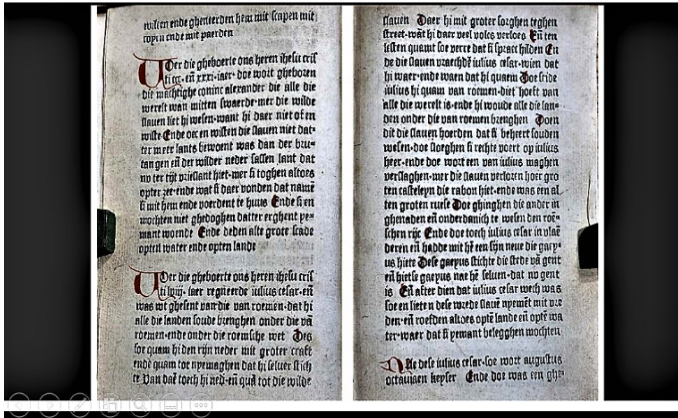 ende gheneerden hem mit scapen mit
ende mit paerden
Uoer die gheboerte ons heren ihesu cris
iaer· doe wort gheboren
die machtighe coninc alexander die alle die
werelt wan mitten swaerde·mer die wilde
slauen liet hi wesen·want hi daer niet of en
wiste Ende oec en wisten die slauen niet dat·
ter meer lants bewoent was dan der bri·
tangen en̄ der wilder neder sassen lant dat
nu ter tijt vrieslant hiet·mer si toghen altoes
opter zee·ende wat si daer vonden dat namē
si mit hem ende voerdent te huus Ende si en
mochten niet ghedoghen datter erghent ye·
mant woende Ende deden alte grote scade
opten water ende opten lande
Uoer die gheboerte ons heren ihesu cris
iaer regneerde iulius cesar·en̄
was wt ghesent van die van roemen·dat hi
alle die landen soude brenghen onder die vā
roemen·ende onder die roemsche wet Des
soe quam hi den rijn neder mit groter craft
ende quam toe nymaghen dat hi seluer stich
te Van daē toech hi ned·en̄ quā tot die wilde
slauen Daer hi mit groter sorghen teghen
street·wāt hi daer veel volcs verloes En̄ ten
lesten quamt soe verre dat si spract hilden En
de die slauen vraechdē iulius cesar·wien dat
hi waer·ende waen dat hi quaem Doe seide
iulius hi quam van roemen·diet hoeft van
alle die werelt is·ende hi woude alle die lan·
den onder die van roemen brenghen Doen
dit die slauen hoerden dat si beheert souden
wesen·doe sloeghen si rechte voert op iulius
heer·ende doe wort een van iulius maghen
verslaghen·mer die slauen verloren hoer gro
ten casteleyn die rabon hiet·ende was een al
ten groten ruese Doe ghinghen die ander in
ghenaden en̄ onderdanich te wesen den roē·
schen rijc Ende doe toech iulius cesar in vlaē
deren en̄ hadde mit hē een sijn neue die gaey·
us hiete Dese gaeyus stichte die stede vā gent
en̄ hietse gaeyus nae hē seluen·dat nv gent
is En̄ after dien dat iulius cesar wech was
soe en lieten dese wrede slauē nyemēt mit vre
den·en̄ roefden altoes optē lande en̄ optē wa
ter·waer dat si yemant belegghen mochten
Nae dese iulius cesar·soe wort augustus
octauiaen keyser Ende doe was een ghe·